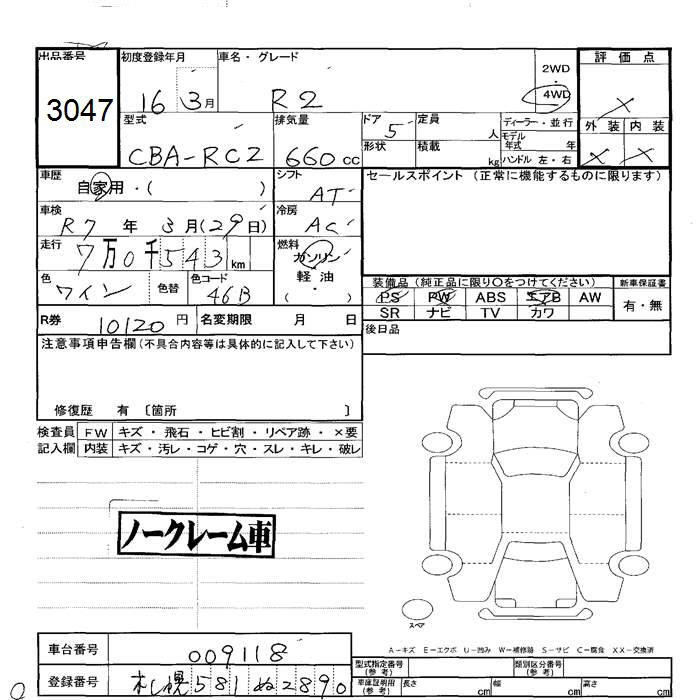 出品番号 初度登録年月 車名・グレード 評価点
3047 16 3月 R2 2WD ・ 4WD ×
型式 排気量 ドア 定員 ディーラー・並行 外装 内装
CBA-RC2 660cc 5 人 モデル年式 年 × ×
形状 積載 kg ハンドル 左・右
車歴 シフト セールスポイント(正常に機能するものに限ります)
自家用・( ) AT
車検 冷房
R7年 3月(29日) AC
走行 燃料
7万0千543km ガソリン
軽油
( ・ )
色 色替 色コード
ワイン 46B
装備品(純正品に限り〇をつけてください) 新車保証書
PS PW ABS エアB AW 有・無
SR ナビ TV カワ
R券 10120円 名変期限 月 日 後日品
注意事項申告欄(不具合内容等は具体的に記入して下さい)
修復歴 有 〔箇所 〕
検査員 FW キズ・飛石・ヒビ割・リペア跡・×要
記入欄 内装 キズ・汚レ・コゲ・穴・スレ・キレ・破レ
ノークレーム車
スペア
A-キズ E-エクボ U-凹み W-補修跡 S-サビ C-腐食 XX-交換済
車台番号 009118
型式指定番号(参考) 類別区分番号(参考)
登録番号 札幌581ぬ2890
車庫証明用(参考) 長さ cm 幅 cm 高さ cm